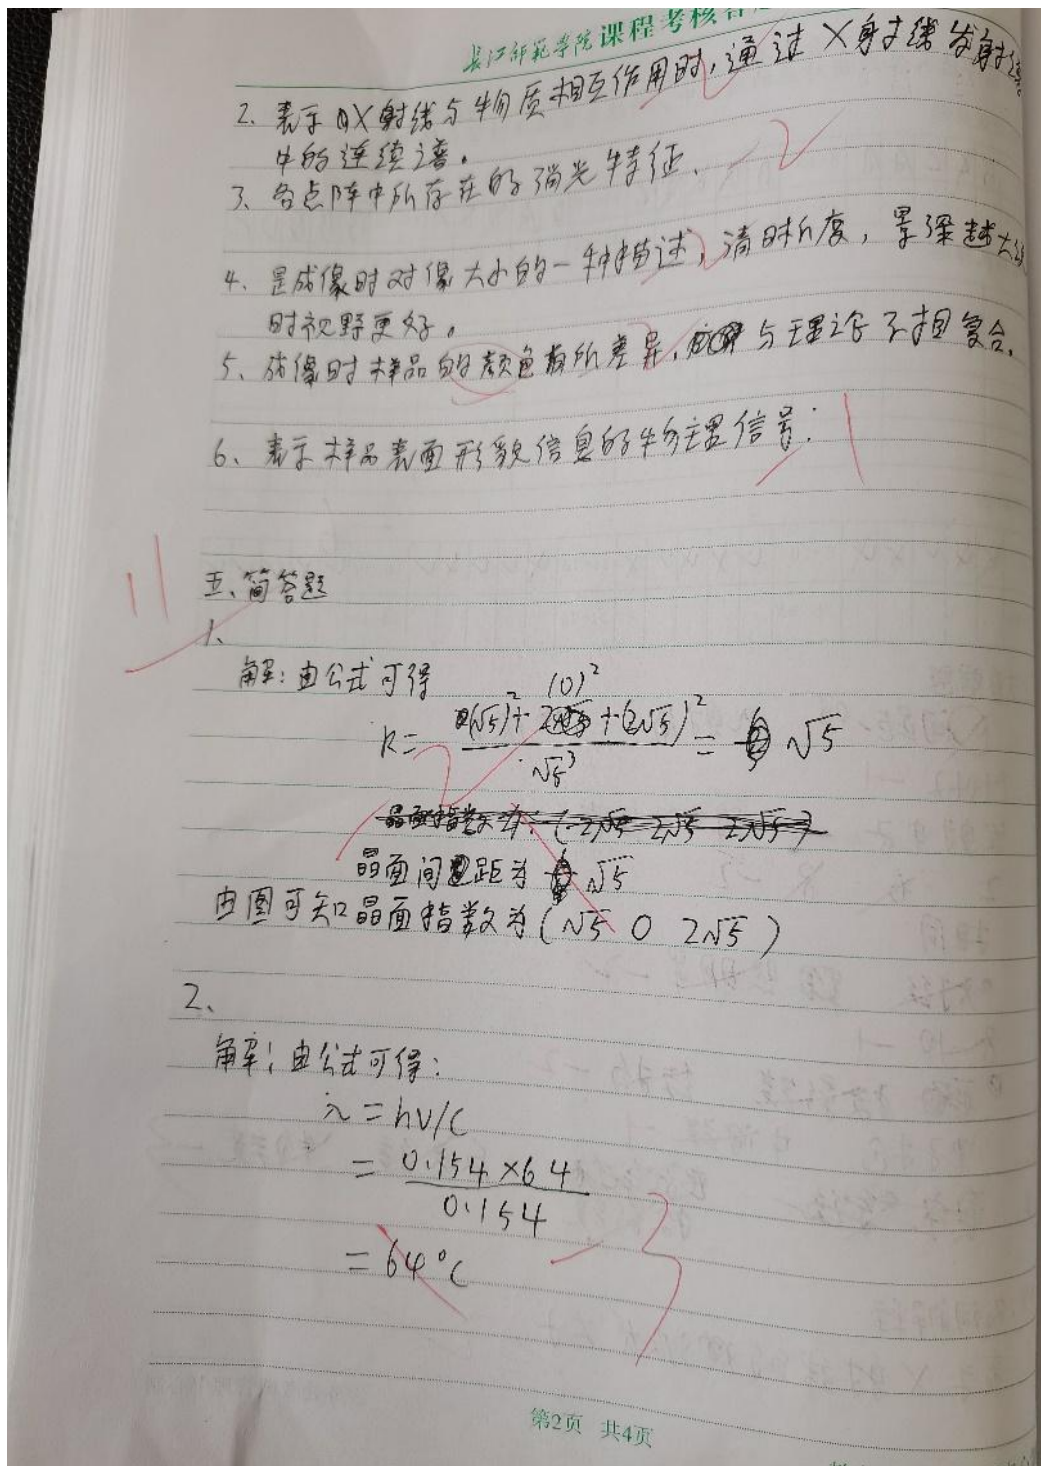 长江师范学院 课程考核答
2. 表示X射线与物质相互作用时,通过X射线发射源
中的连续谱。
3、各点阵中所存在的消光特征. -2
4、是成像时对像大小的一种描述,清晰度,景深越大
时视野更好。
5、成像时样品的颜色有所差异, 与理论不相复合.
6、表示样品表面形貌信息的物理信号: -1
11
五、简答题
1、
解:由公式可得
R= (√5)²+(0)²+(2√5)² / √5³ = √5
晶面指数为:(2√5 2√5 2√5)
晶面间距为 √5
由图可知晶面指数为(√5 0 2√5)
2、
解:由公式可得:
λ=hν/c
= 0.154×64 / 0.154
= 64°C -3
第2页 共4页